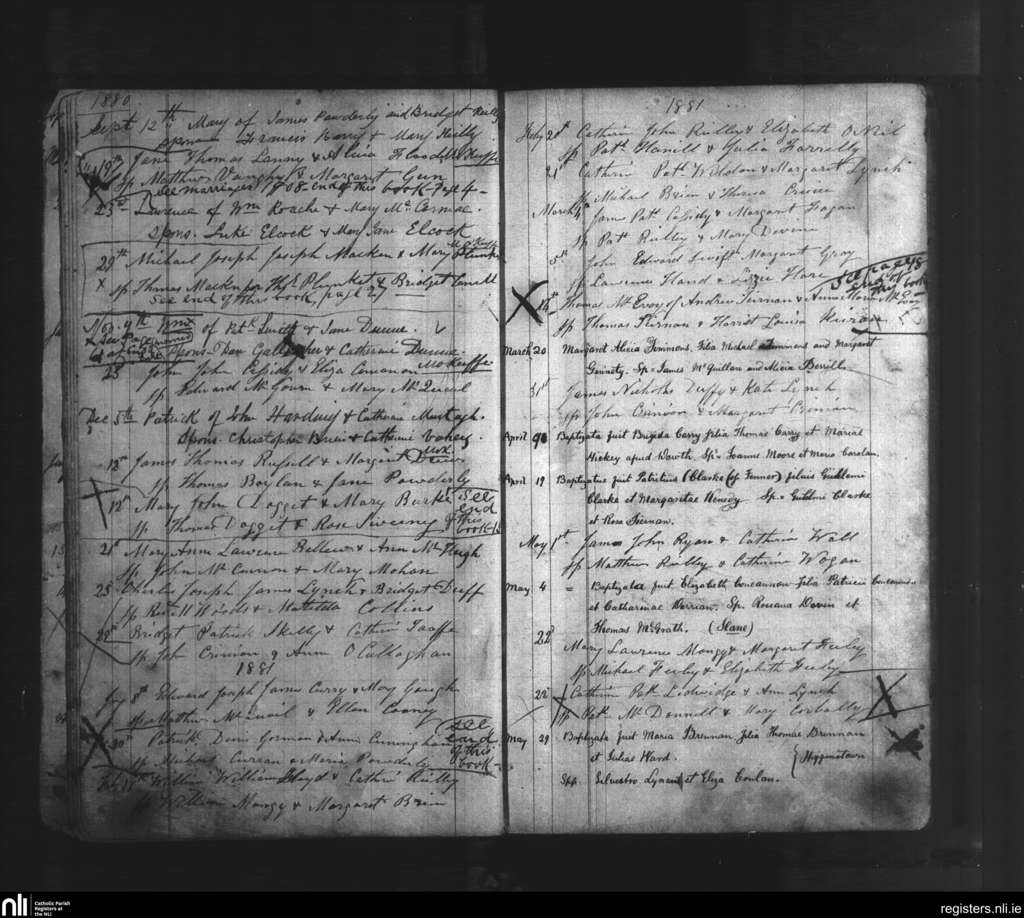 1880
Sept 12th Mary of James Powderly and Bridget Reilly
spons Francis Barry & Mary Reilly
" 19th Jane Thomas Lanny & Alicia
Sp Matthew Vaughy & Margaret Gun
See marriages 1908 end of this book - Page 4-
23rd Laurence of Wm Roache & Mary Mc Cormac.
Spons. Luke Elcock & Mary Jane Elcock
29th Michael Joseph Joseph Macken & Mary Plunket
x sp Thomas Macken for Ths Plunket & Bridget
See end of this book, page 27
Nov. 9th Wm of Patk Smith & Jane Dunne.
Spons Dan & Catherine Dunne
23 John John Cassidy & Eliza Concannon
sp Edward Mc Gowan & Mary Mc Quail
Dec 5th Patrick of John Harding & Catherine Murtagh.
Spons. Christopher Brien & Catherine
12th James Thomas Russell & Margaret
sp Thomas Boylan & Jane Powderly
12th Mary John Dogget & Mary Burke
See
end
of this
book
sp Thomas Dogget & Rose Sweeney
21st Mary Anne Laurence Bellew & Ann Mc Hugh
Sp John Mc Curron & Mary Mohan
25 Charles Joseph James Lynch & Bridget Duff
sp Rev M Woods & Matilda Collins
29th Bridget Patrick Skelly & Cathrin Taaffe
sp John Crinion & Ann O Callaghan
1881
Jany 8th Edward Joseph James Curry & Mary Gough
sp Matthew Mc Quail & Ellen Cooney
30th Patrick Denis Gorman & Anne Cunningham
See
end
of this
book
sp Michael Curran & Maria Powderly
Feby William William & Cathrn Reilly
sp William Mongy & Margaret Brien
1881
Feby 20th Cathrin John Reilly & Elizabeth O Neil
sp Patk Hamill & Julia Farrelly
21st Cathrin Patk Whelan & Margaret Lynch
sp Michael Brien & Theresa
March 4th James Patk Cassidy & Margaret Fagan
Sp Patk Reilly & Mary Devine
5th John Edward Swift Margaret Gray
sp Lawrence Hand & Lizzie Hare
See page 18
end of
this book
14th Thomas Mc Evoy of Andrew Tiernan & Anne
sp Thomas Tiernan & Harriot Louisa Kieran
March 20 Margaret Alicia Timmons, filia Michael Timmons and Margaret
Geraghty. Sp = James Mc Quillan and Alicia
31st James Nicholas Duffy & Kate Lynch
sp John Crinion & Margaret Crinion
April 9 Baptizata fuit Brigida Carry filia Thomas Carry et Mariae
Hickey apud Howth Sp = Joanne Moore et Maria Carolan.
April 19 Baptizatus fuit Patritius Clarke (of Fennor) filius Gulielmi
Clarke et Margaritae Sp = Gulielmi Clarke
et Rosa Tiernan.
May 1st. James John Ryan & Cathrin Wall
sp Matthew Reilly & Cathrin Wogan
May 4 = Baptizata fuit Elizabeth Concannon filia Patricii Concannon
et Catharinae Derrian. Sp. Rosanna Devin et
Thomas McGrath. (Slane)
22d Mary Laurence Mongy & Margaret Feeley
sp Michael Feeley & Elizabeth Feeley
22d Cathrin Patk Ledwidge & Ann Lynch
sp Patk Mc Donnell & Mary Corbally
May 29 Baptizata fuit Maria Brennan filia Thomas Brennan
et Julias Ward. { Higginstown
Spp. Silvestro Lynam et Eliza Conlan.
nli
Catholic Parish
Registers at
the NLI
registers.nli.ie